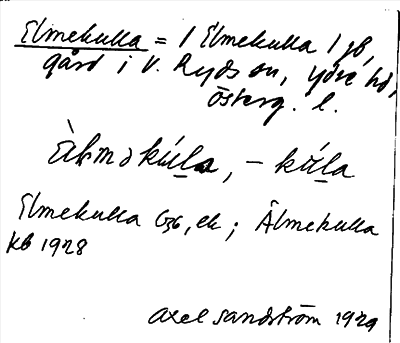 Elmekulla = 1 Elmekulla 1 jb,
gård i V. Ryds sn, Ydre hd,
Österg. l.
kúla, – kúla
Elmekulla G36, ek; Älmekulla
kb 1928
Axel Sandström 1929